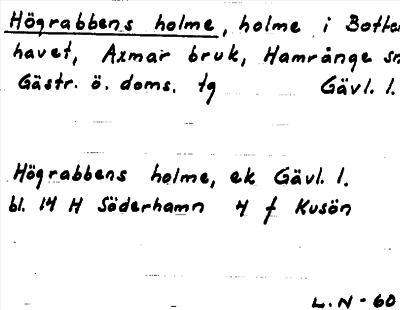 Högrabbens holme, holme i Botten
havet, Axmar bruk, Hamrånge sn
Gästr. ö. doms. tg Gävl. l.
Högrabbens holme, ek Gävl. l.
bl. 14 H Söderhamn 4 f Kusön
L.N-60